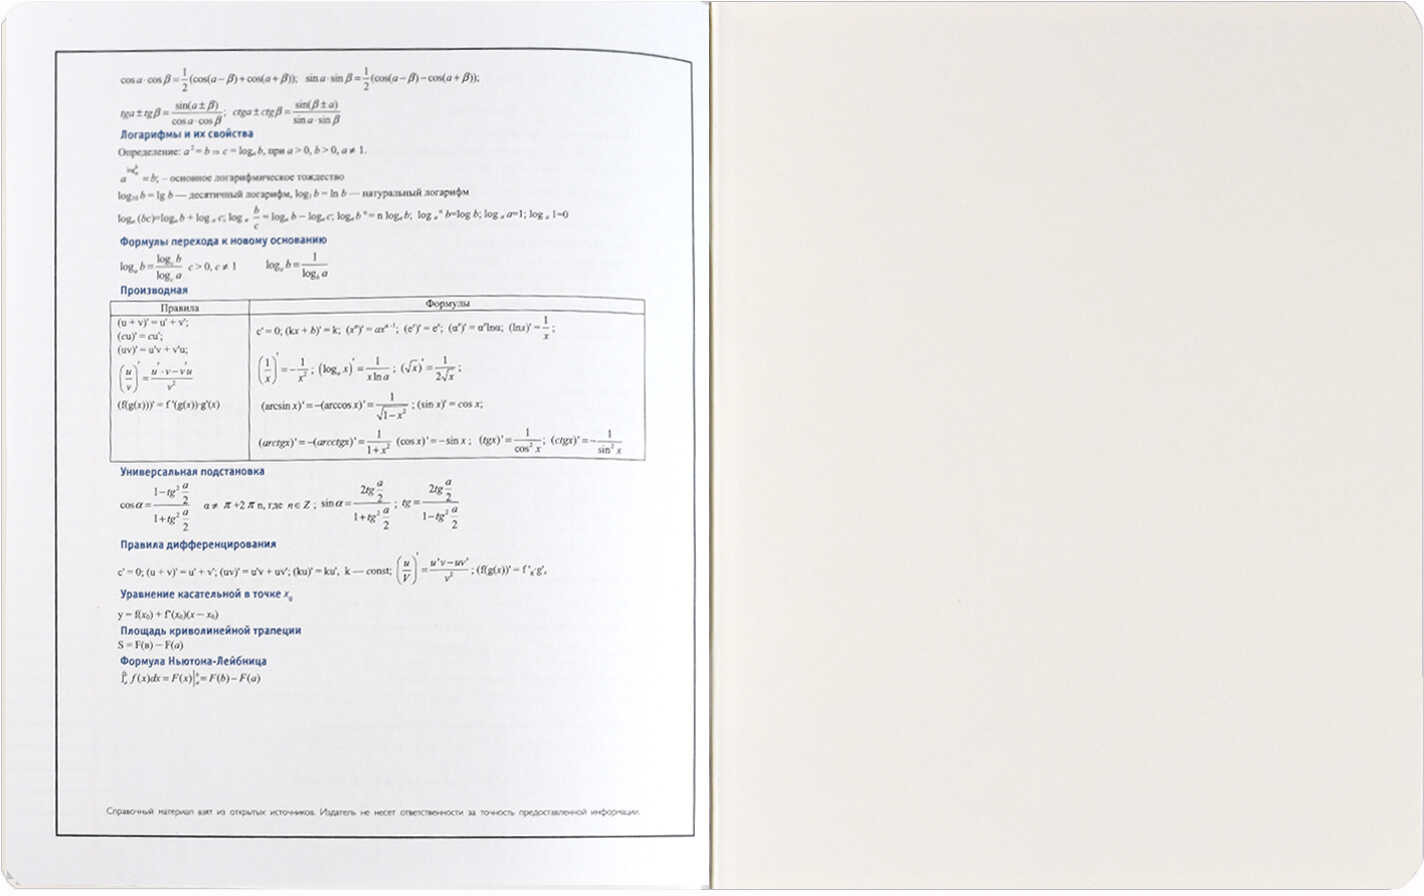 cos a · cos β = 1/2 (cos(a − β) + cos(a + β)); sin a · sin β = 1/2 (cos(a − β) − cos(a + β));
tga ± tgβ = sin(a ± β) / cos a · cos β ; ctga ± ctgβ = sin(β ± a) / sin a · sin β
Логарифмы и их свойства
Определение: a² = b ⇒ c = logₐ b, при a > 0, b > 0, a ≠ 1.
a^log = b; – основное логарифмическое тождество
log₁₀ b = lg b — десятичный логарифм, log b = ln b — натуральный логарифм
logₐ (bc)=logₐ b + log ₐ c; log ₐ b/c = logₐ b − logₐ c; logₐ b ⁿ = n logₐ b; log ₐ ⁿ b=log b; log ₐ a=1; log ₐ 1=0
Формулы перехода к новому основанию
logₐ b = log꜀ b / log꜀ a c > 0, c ≠ 1 logₐ b = 1 / log_b a
Производная
Правила Формулы
(u + v)' = u' + v';
(cu)' = cu';
(uv)' = u'v + v'u;
(u/v)' = u' · v − v' u / v²
(f(g(x)))' = f '(g(x))·g'(x)
c' = 0; (kx + b)' = k; (xⁿ)' = axⁿ⁻¹; (eˣ)' = eˣ; (αˣ)' = αˣlnα; (lnx)' = 1/x ;
(1/x)' = − 1/x² ; (logₐ x)' = 1 / x ln a ; (√x)' = 1 / 2√x ;
(arcsin x)' = −(arccos x)' = 1 / √(1 − x²) ; (sin x)' = cos x;
(arctgx)' = −(arcctgx)' = 1 / 1 + x² (cos x)' = − sin x ; (tgx)' = 1 / cos² x ; (ctgx)' = − 1 / sin² x
Универсальная подстановка
cos α = 1 − tg² a/2 / 1 + tg² a/2 α ≠ π +2 π n, где n ∈ Z ; sin α = 2tg a/2 / 1 + tg² a/2 ; tg = 2tg a/2 / 1 − tg² a/2
Правила дифференцирования
c' = 0; (u + v)' = u' + v'; (uv)' = u'v + uv'; (ku)' = ku', k — const; (u/V)' = u'v − uv' / v² ; (f(g(x))' = f 'g·g'ₓ
Уравнение касательной в точке x₀
y = f(x₀) + f'(x₀)(x − x₀)
Площадь криволинейной трапеции
S = F(в) − F(a)
Формула Ньютона-Лейбница
∫ₐᵇ f (x)dx = F(x)|ₐᵇ = F(b) − F(a)
Справочный материал взят из открытых источников. Издатель не несет ответственности за точность предоставленной информации.